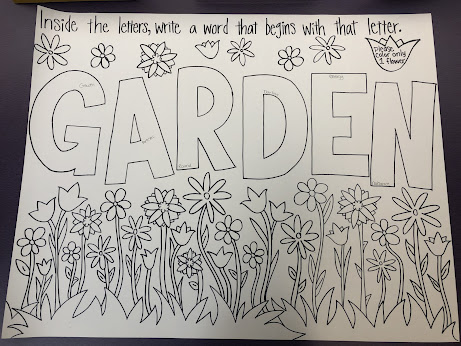 Inside the letters, write a word that begins with that letter.
Please
color only
1 flower
GARDEN